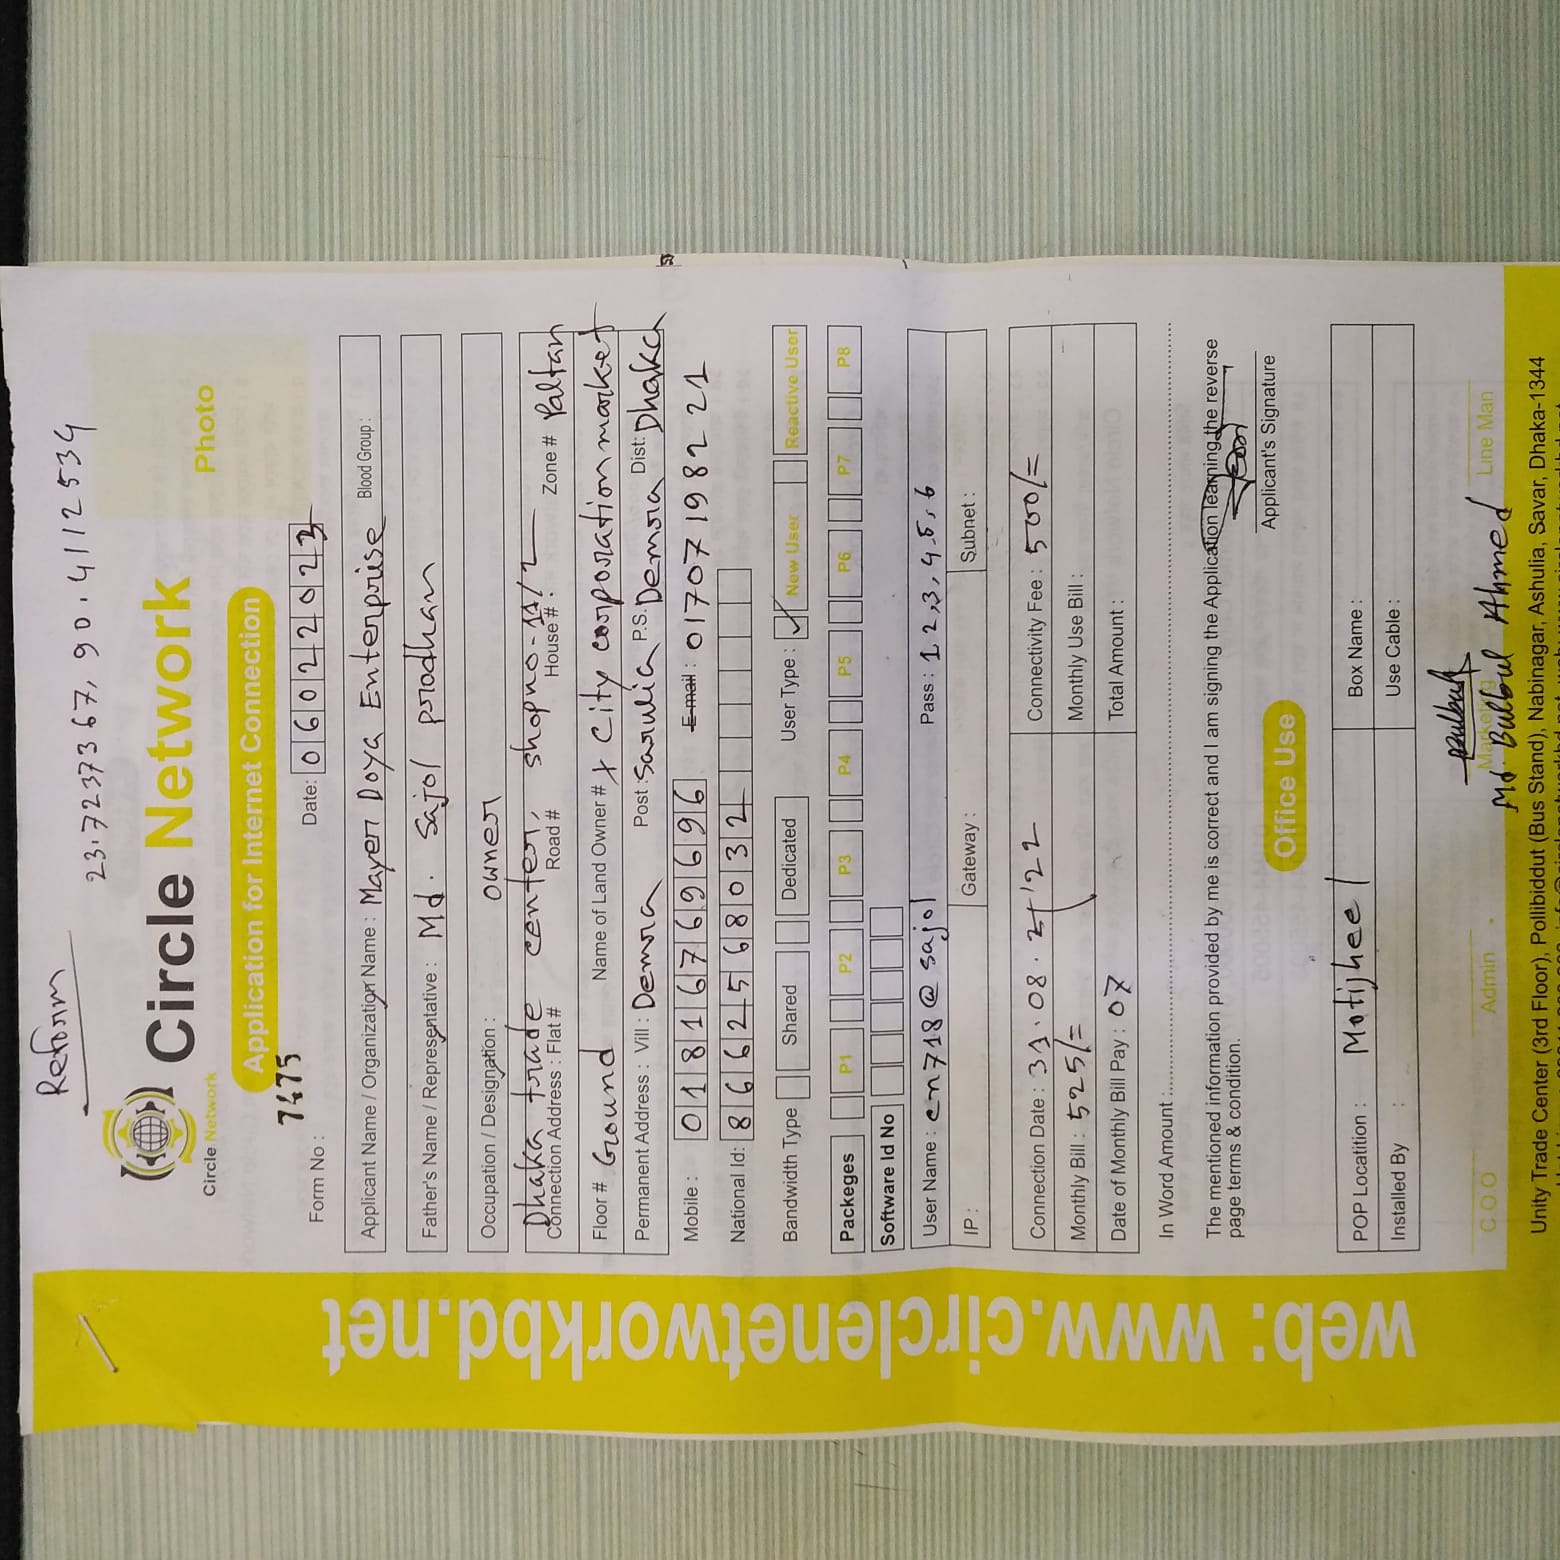 Reform
23.7237367, 90.4112534
Circle Network
Circle Network
Photo
Application for Internet Connection
7475
Form No :
Date: 06022023
Applicant Name / Organization Name : Mayer Doya Enterprise Blood Group :
Father's Name / Representative : Md. Sajol prodhan
Occupation / Designation : owner
Dhaka trade center, shopno-11/2
Connection Address : Flat # Road # House # : Zone # Paltan
Floor # Ground Name of Land Owner # City corporation market
Permanent Address : Vill : Demra Post : Sarulia P.S. Demra Dist: Dhaka
Mobile : 01816769696 Email : 01707198221
National Id: 8662568032
Bandwidth Type Shared Dedicated User Type : ✓ New User Reactive User
Packeges P1 P2 P3 P4 P5 P6 P7 P8
Software Id No
User Name : cn718@sajol Pass : 1,2,3,4,5,6
IP : Gateway : Subnet :
Connection Date : 31.08.2022 Connectivity Fee : 500/=
Monthly Bill : 525/= Monthly Use Bill :
Date of Monthly Bill Pay : 07 Total Amount :
In Word Amount :
The mentioned information provided by me is correct and I am signing the Application learning the reverse
page terms & condition.
Applicant's Signature
Office Use
POP Locatition : Motijheel Box Name :
Installed By : Use Cable :
Md. Bulbul Ahmed
C O O Admin Marketing Line Man
Unity Trade Center (3rd Floor), Pollibiddut (Bus Stand), Nabinagar, Ashulia, Savar, Dhaka-1344
web: www.circlenetworkbd.net